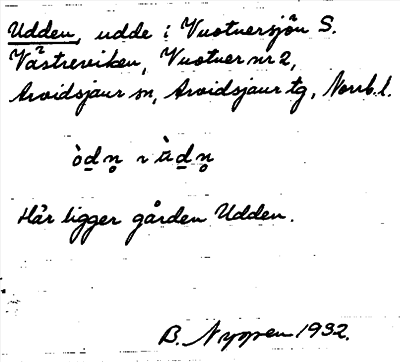 Udden, udde i Vuotnersjön S.
Västreviken, Vuotner nr 2,
Arvidsjaur sn, Arvidsjaur tg, Norrb. l.
òd̲n̥ ~ ù̈d̲n̥
Här ligger gården Udden.
B. Nyppen 1932.